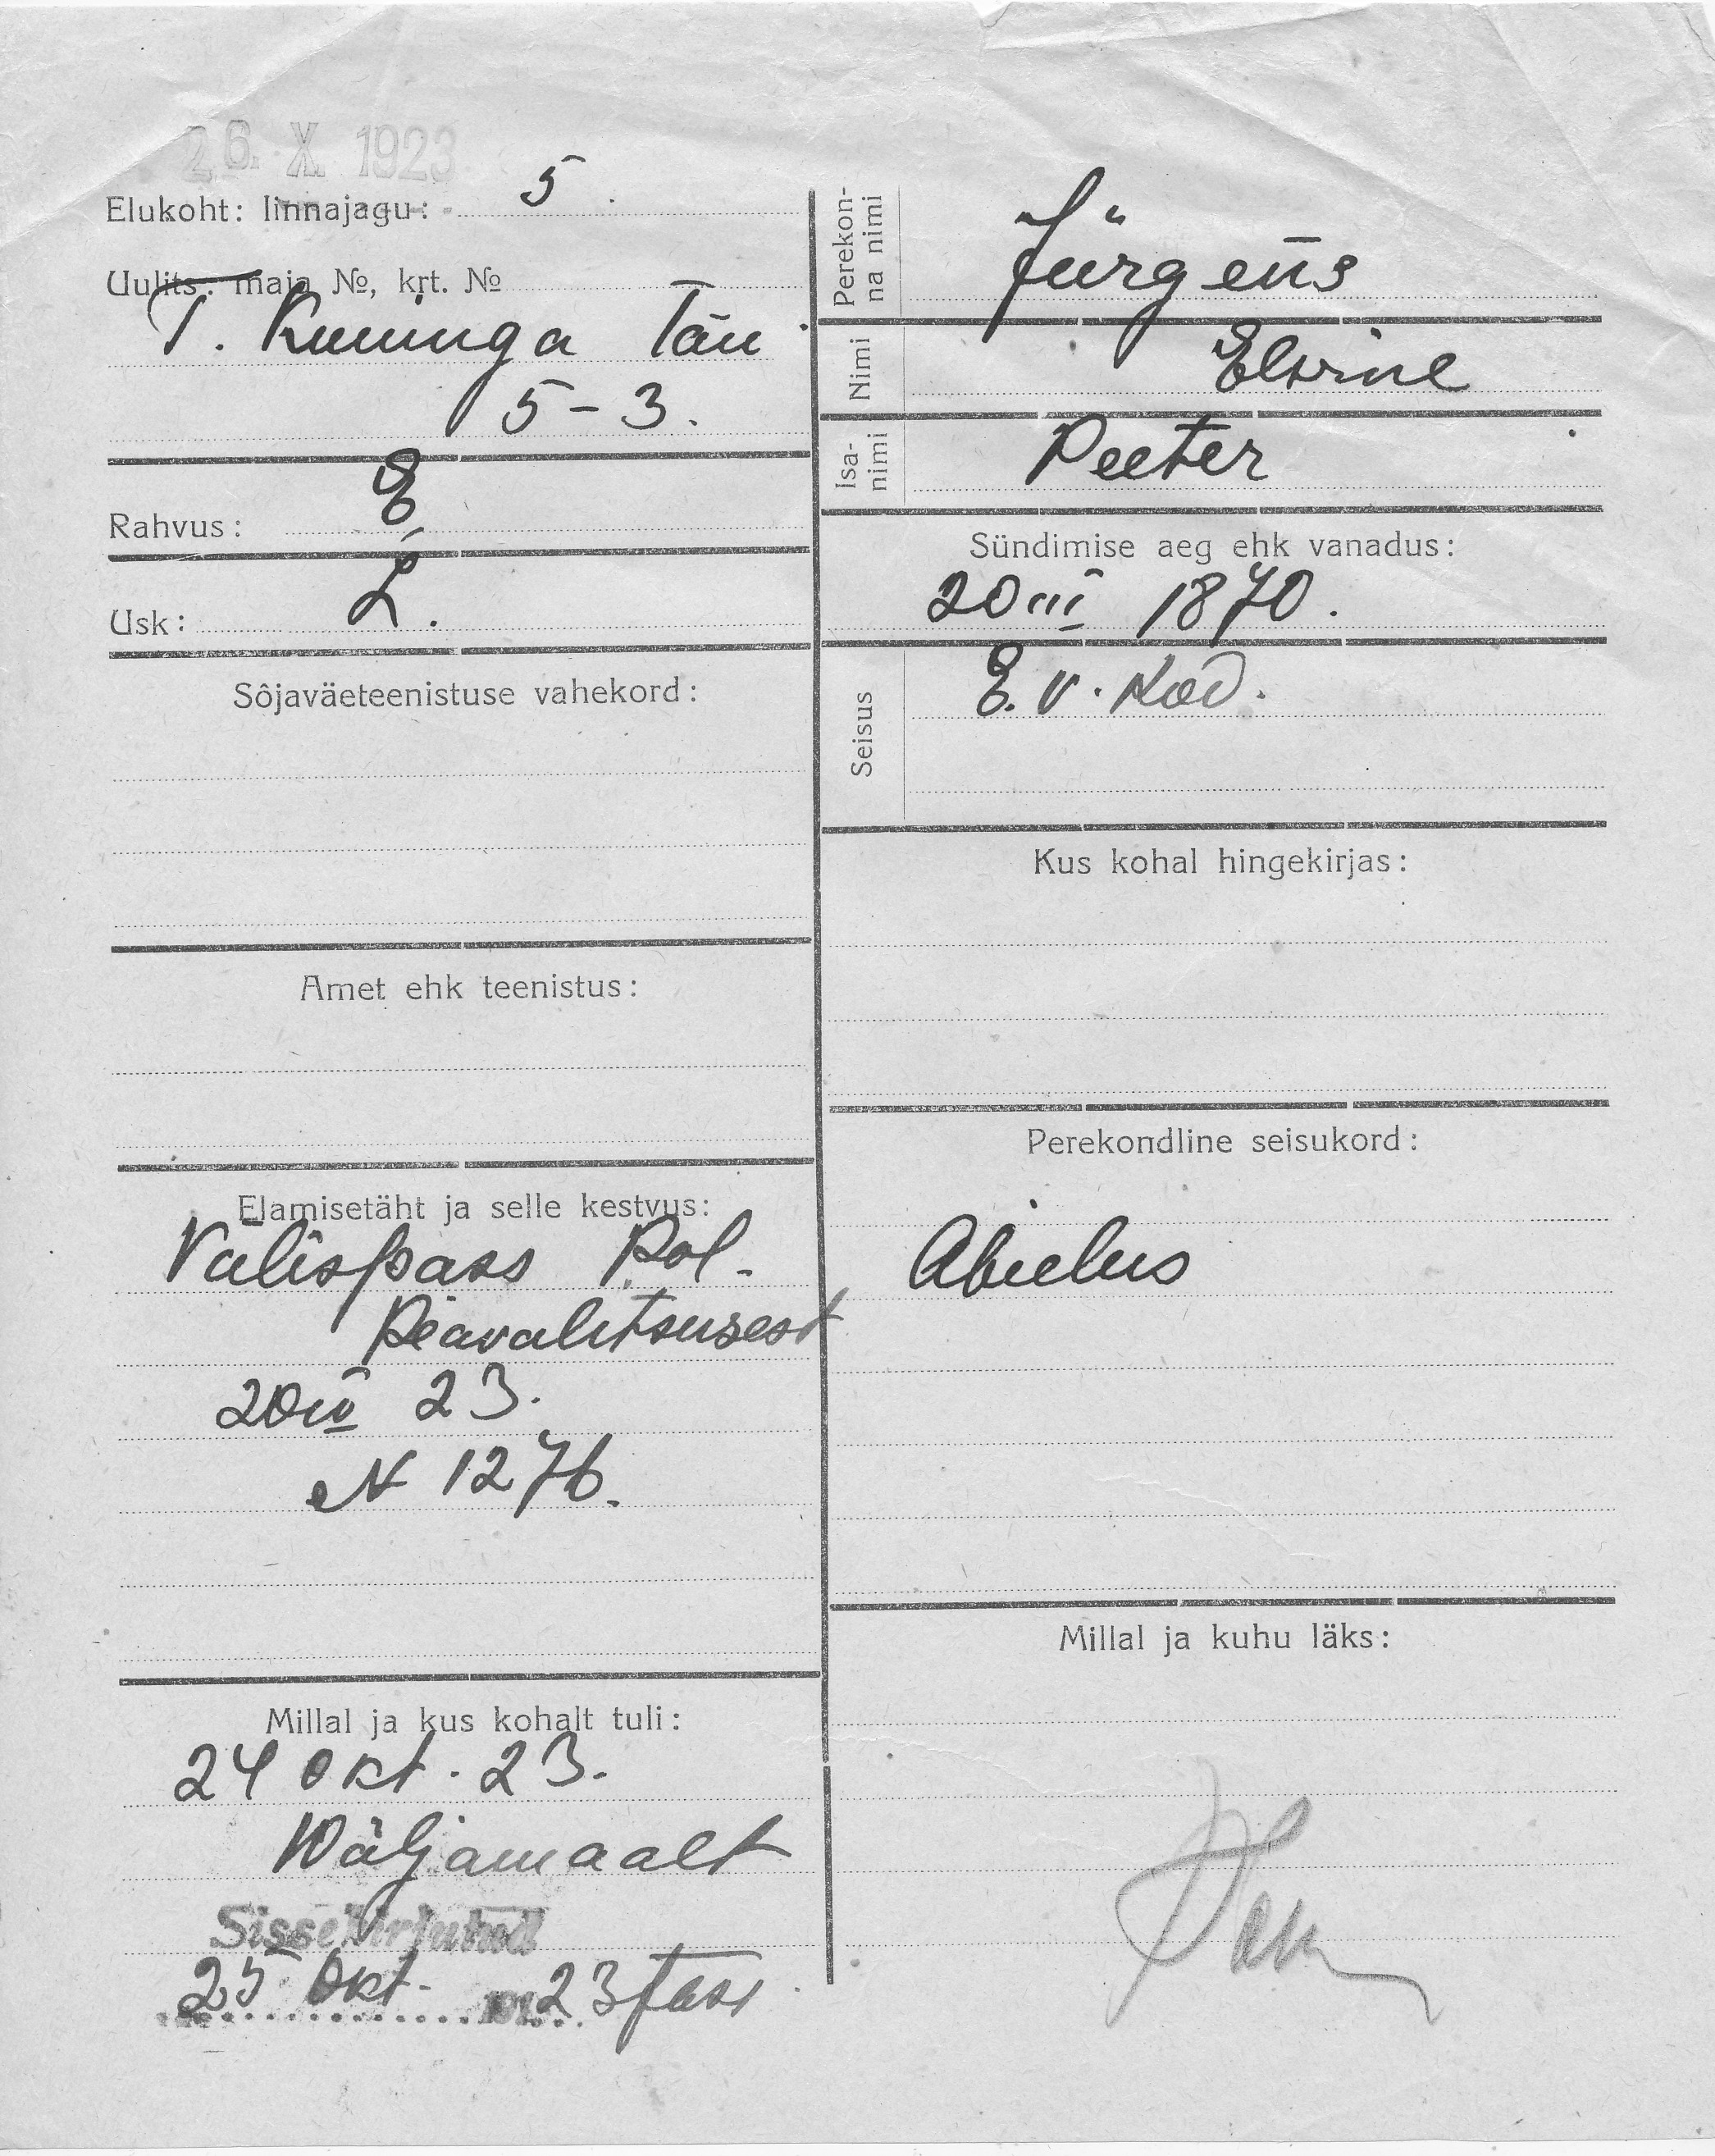 26. X 1923
Elukoht: linnajagu: 5.
Uulits: maja №, krt. №
T. Kuninga Tän.
5-3.
Rahvus: E.
Usk: L.
Sôjaväeteenistuse vahekord:
Amet ehk teenistus:
Elamisetäht ja selle kestvus:
Välispass Pol.
Peavalitsusest
20 IV 23.
N 1276.
Millal ja kus kohalt tuli:
24 Okt. 23.
Wäljamaalt
Sissekirjutud
25 Okt. 1923
Perekonna nimi
Jürgens
Nimi
Elwine
Isa-nimi
Peeter
Sündimise aeg ehk vanadus:
20 III 1870.
Seisus
E. V. Kod.
Kus kohal hingekirjas:
Perekondline seisukord:
Abielus
Millal ja kuhu läks: